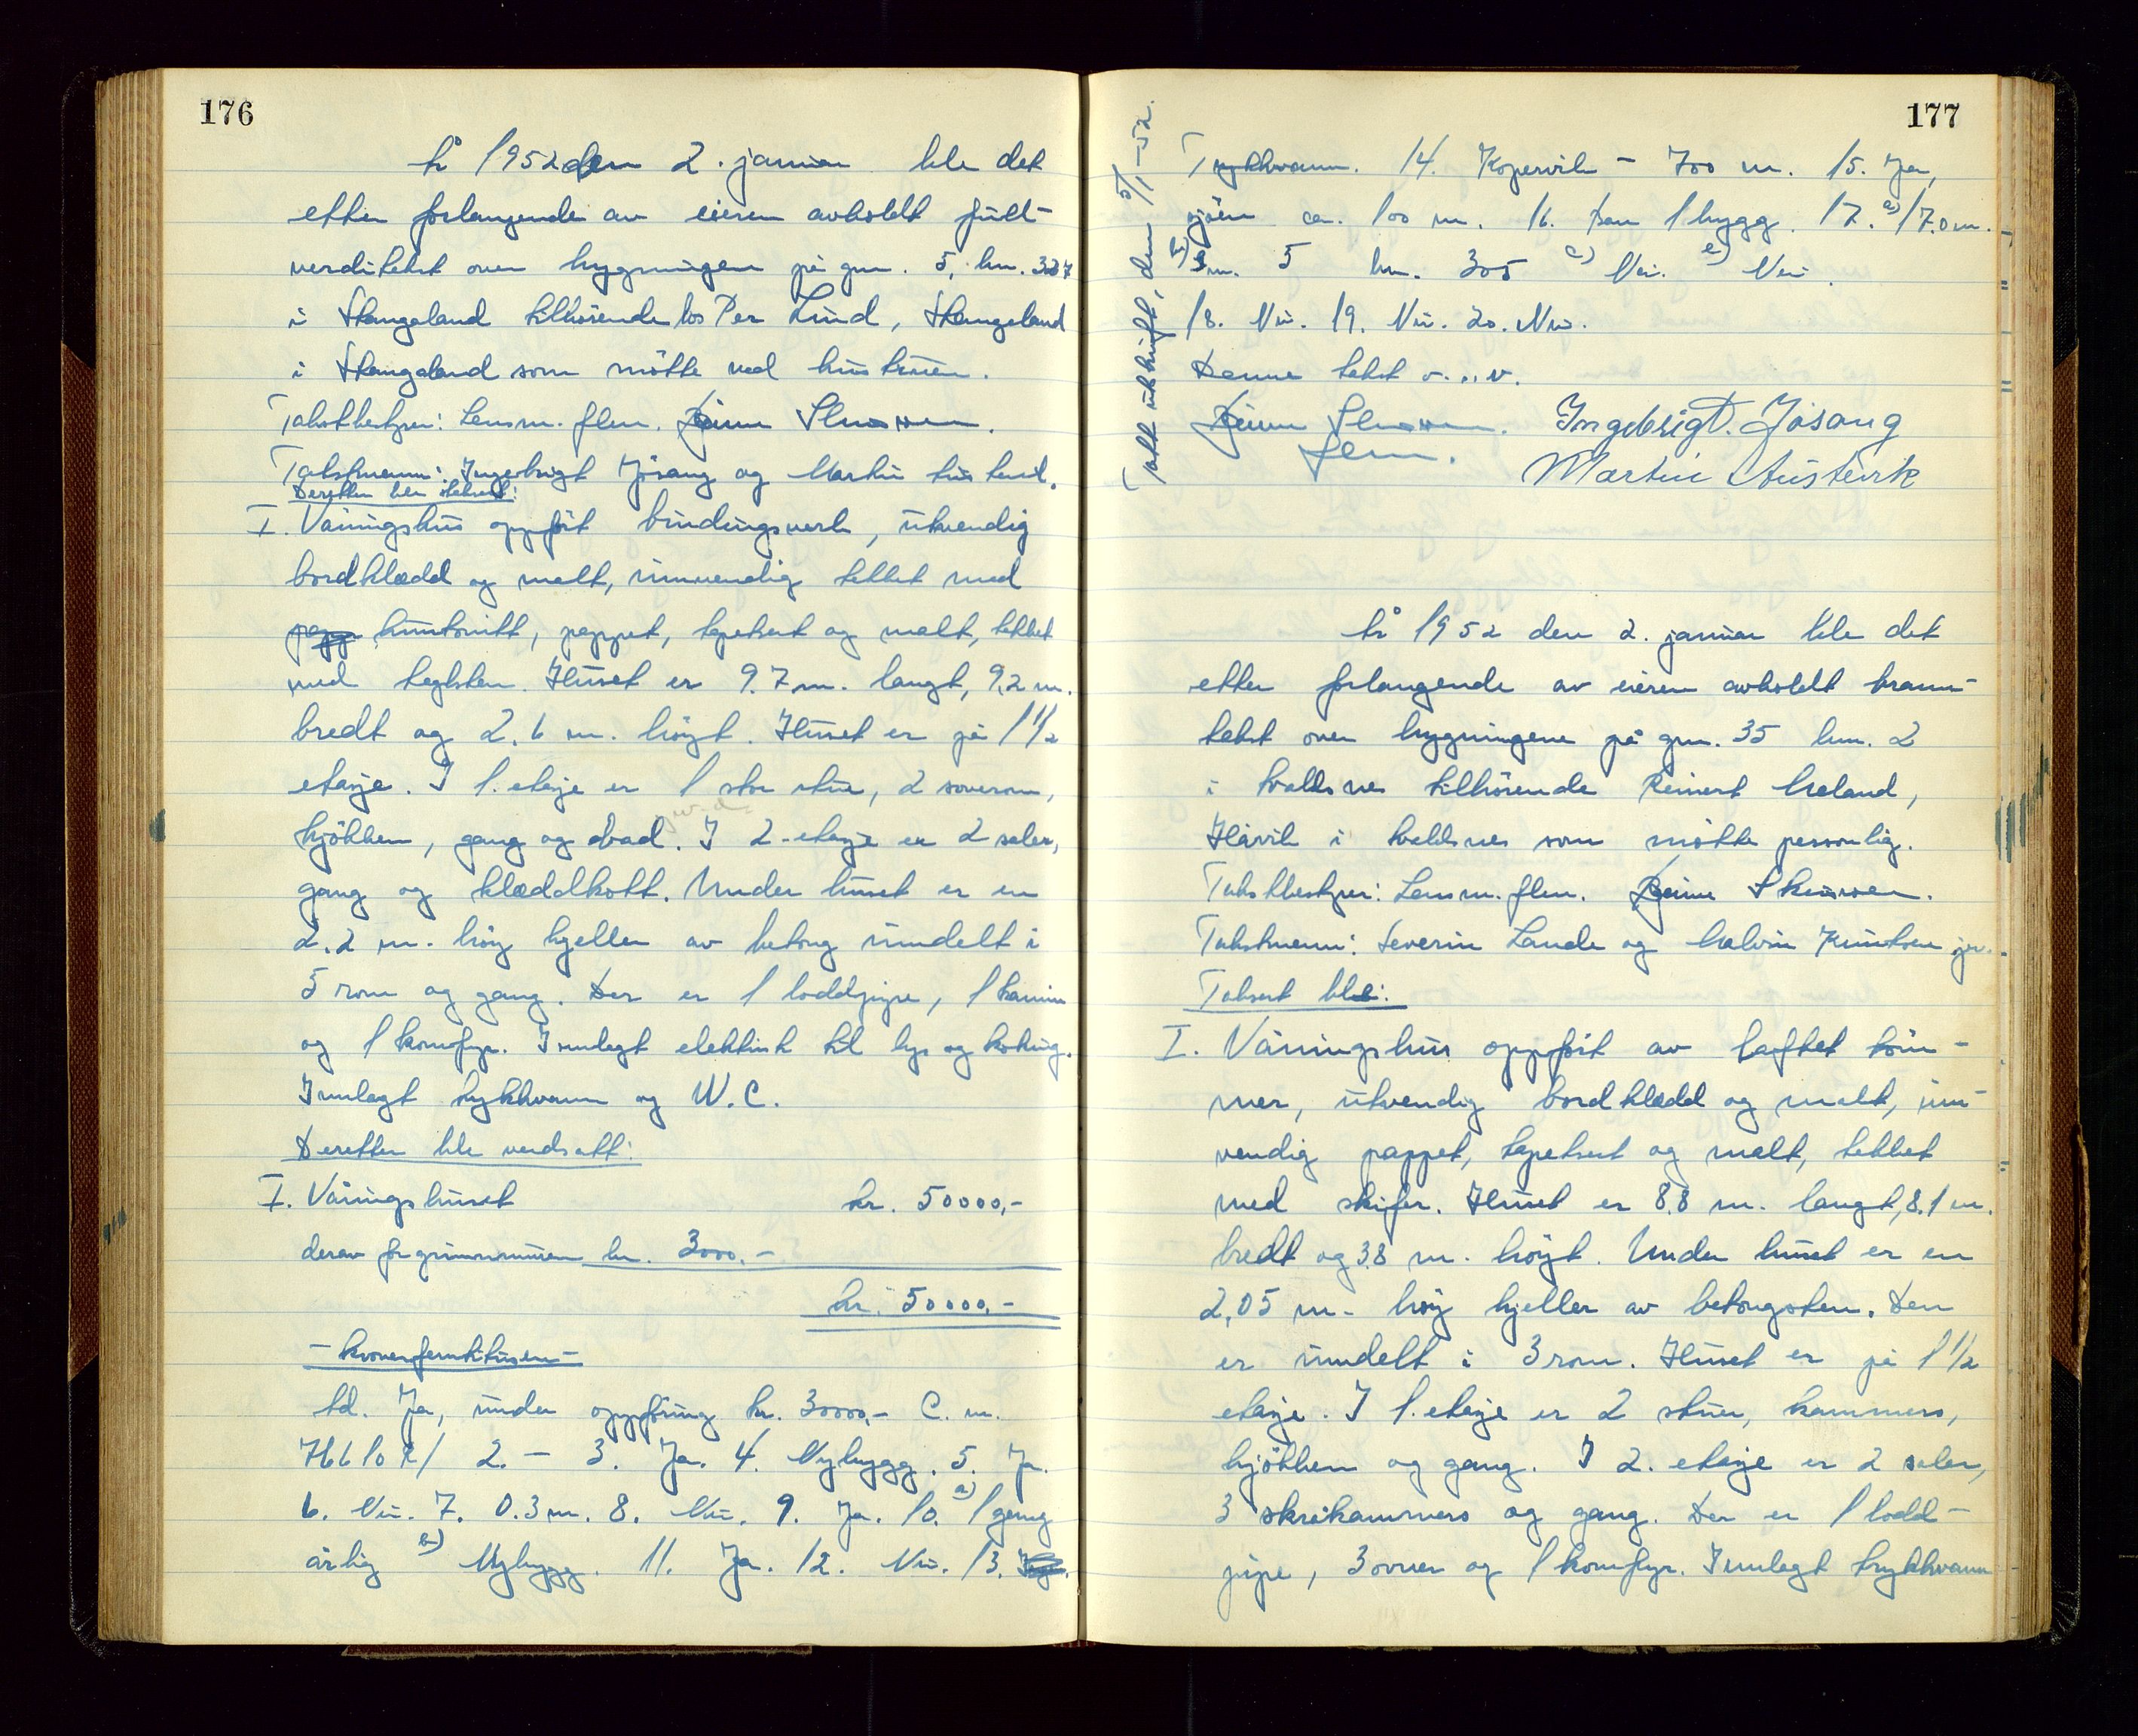 176
År 1952 den 2. januar ble det
etter forlangende av eieren avholdt full-
verditakst over bygningen på gnr. 5, bnr. 327
i Skangeland tilhørende Per Lund, Skangeland
i Skangeland som møtte ved hustruen.
Takstbestyrer: Lensm. flm.
Takstmenn: Ingebrigt Jøsang og Martin Austevik.
Deretter ble taksert:
I. Våningshus oppført bindingsverk, utvendig
bordklædd og malt, innvendig tettet med
papp huntonitt, pappet, tapetsert og malt, tekket
med teglsten. Huset er 9.7 m. langt, 9,2 m.
bredt og 2.6 m. høyt. Huset er på 1 1/2
etasje. I 1. etasje er 1 stor stue, 2 soverom,
kjøkken, gang og bad. I 2. etasje er 2 saler,
gang og klæddkott. Under huset er en
2.2 m. høy kjeller av betong inndelt i
5 rom og gang. Der er 1 loddpipe, 1 kamin
og 1 komfyr. Innlagt elektrisk til lys og koking.
Innlagt trykkvann og W.C.
Deretter ble verdsatt:
I. Våningshuset kr. 50000,-
derav for grunnmuren kr. 3000.-
kr. 50000.-
- kronerfemtitusen -
td. Ja, under oppføring kr. 30000,- C. nr.
2. - 3. Ja. 4. Nybygg. 5. Ja.
6. Nei. 7. 0.3 m. 8. Nei. 9. Ja. 10. a) 1 gang
årlig b) Nybygg. 11. Ja. 12. Nei. 13.
177
Trykkvann. 14. Kopervik - 700 m. 15. Ja,
sjøen ca. 100 m. 16. Den 1 bygg. 17. a) 17.0 m.
b) gnr. 5 bnr. 305 c) Nei. e) Nei.
18. Nei. 19. Nei. 20. Nei.
Denne takst o.s.v.
Ingebrigt. Jøsang
flm. Martin Austevik
(Tatt utskrift, den 5/1-52.
År 1952 den 2. januar ble det
etter forlangende av eieren avholdt brann-
takst over bygningene på gnr. 35 bnr. 2
i Avaldsnes tilhørende Reinert Meland,
Håvik i Avaldsnes som møtte personlig.
Takstbestyrer: Lensm. flm.
Takstmenn: Severin Lande og Malvin Knutsen jr.
Taksert ble:
I. Våningshus oppført av laftet tøm-
mer, utvendig bordklædd og malt, inn-
vendig pappet, tapetsert og malt, tekket
med skifer. Huset er 8.8 m. langt, 8.1 m.
bredt og 3.8 m. høyt. Under huset er en
2,05 m. høy kjeller av betongsten. Den
er inndelt i 3 rom. Huset er på 1 1/2
etasje. I 1. etasje er 2 stuer, kammers,
kjøkken og gang. I 2. etasje er 2 saler,
3 skråkammers og gang. Der er 1 lodd-
pipe, 3 ovner og 1 komfyr. Innlagt trykkvann